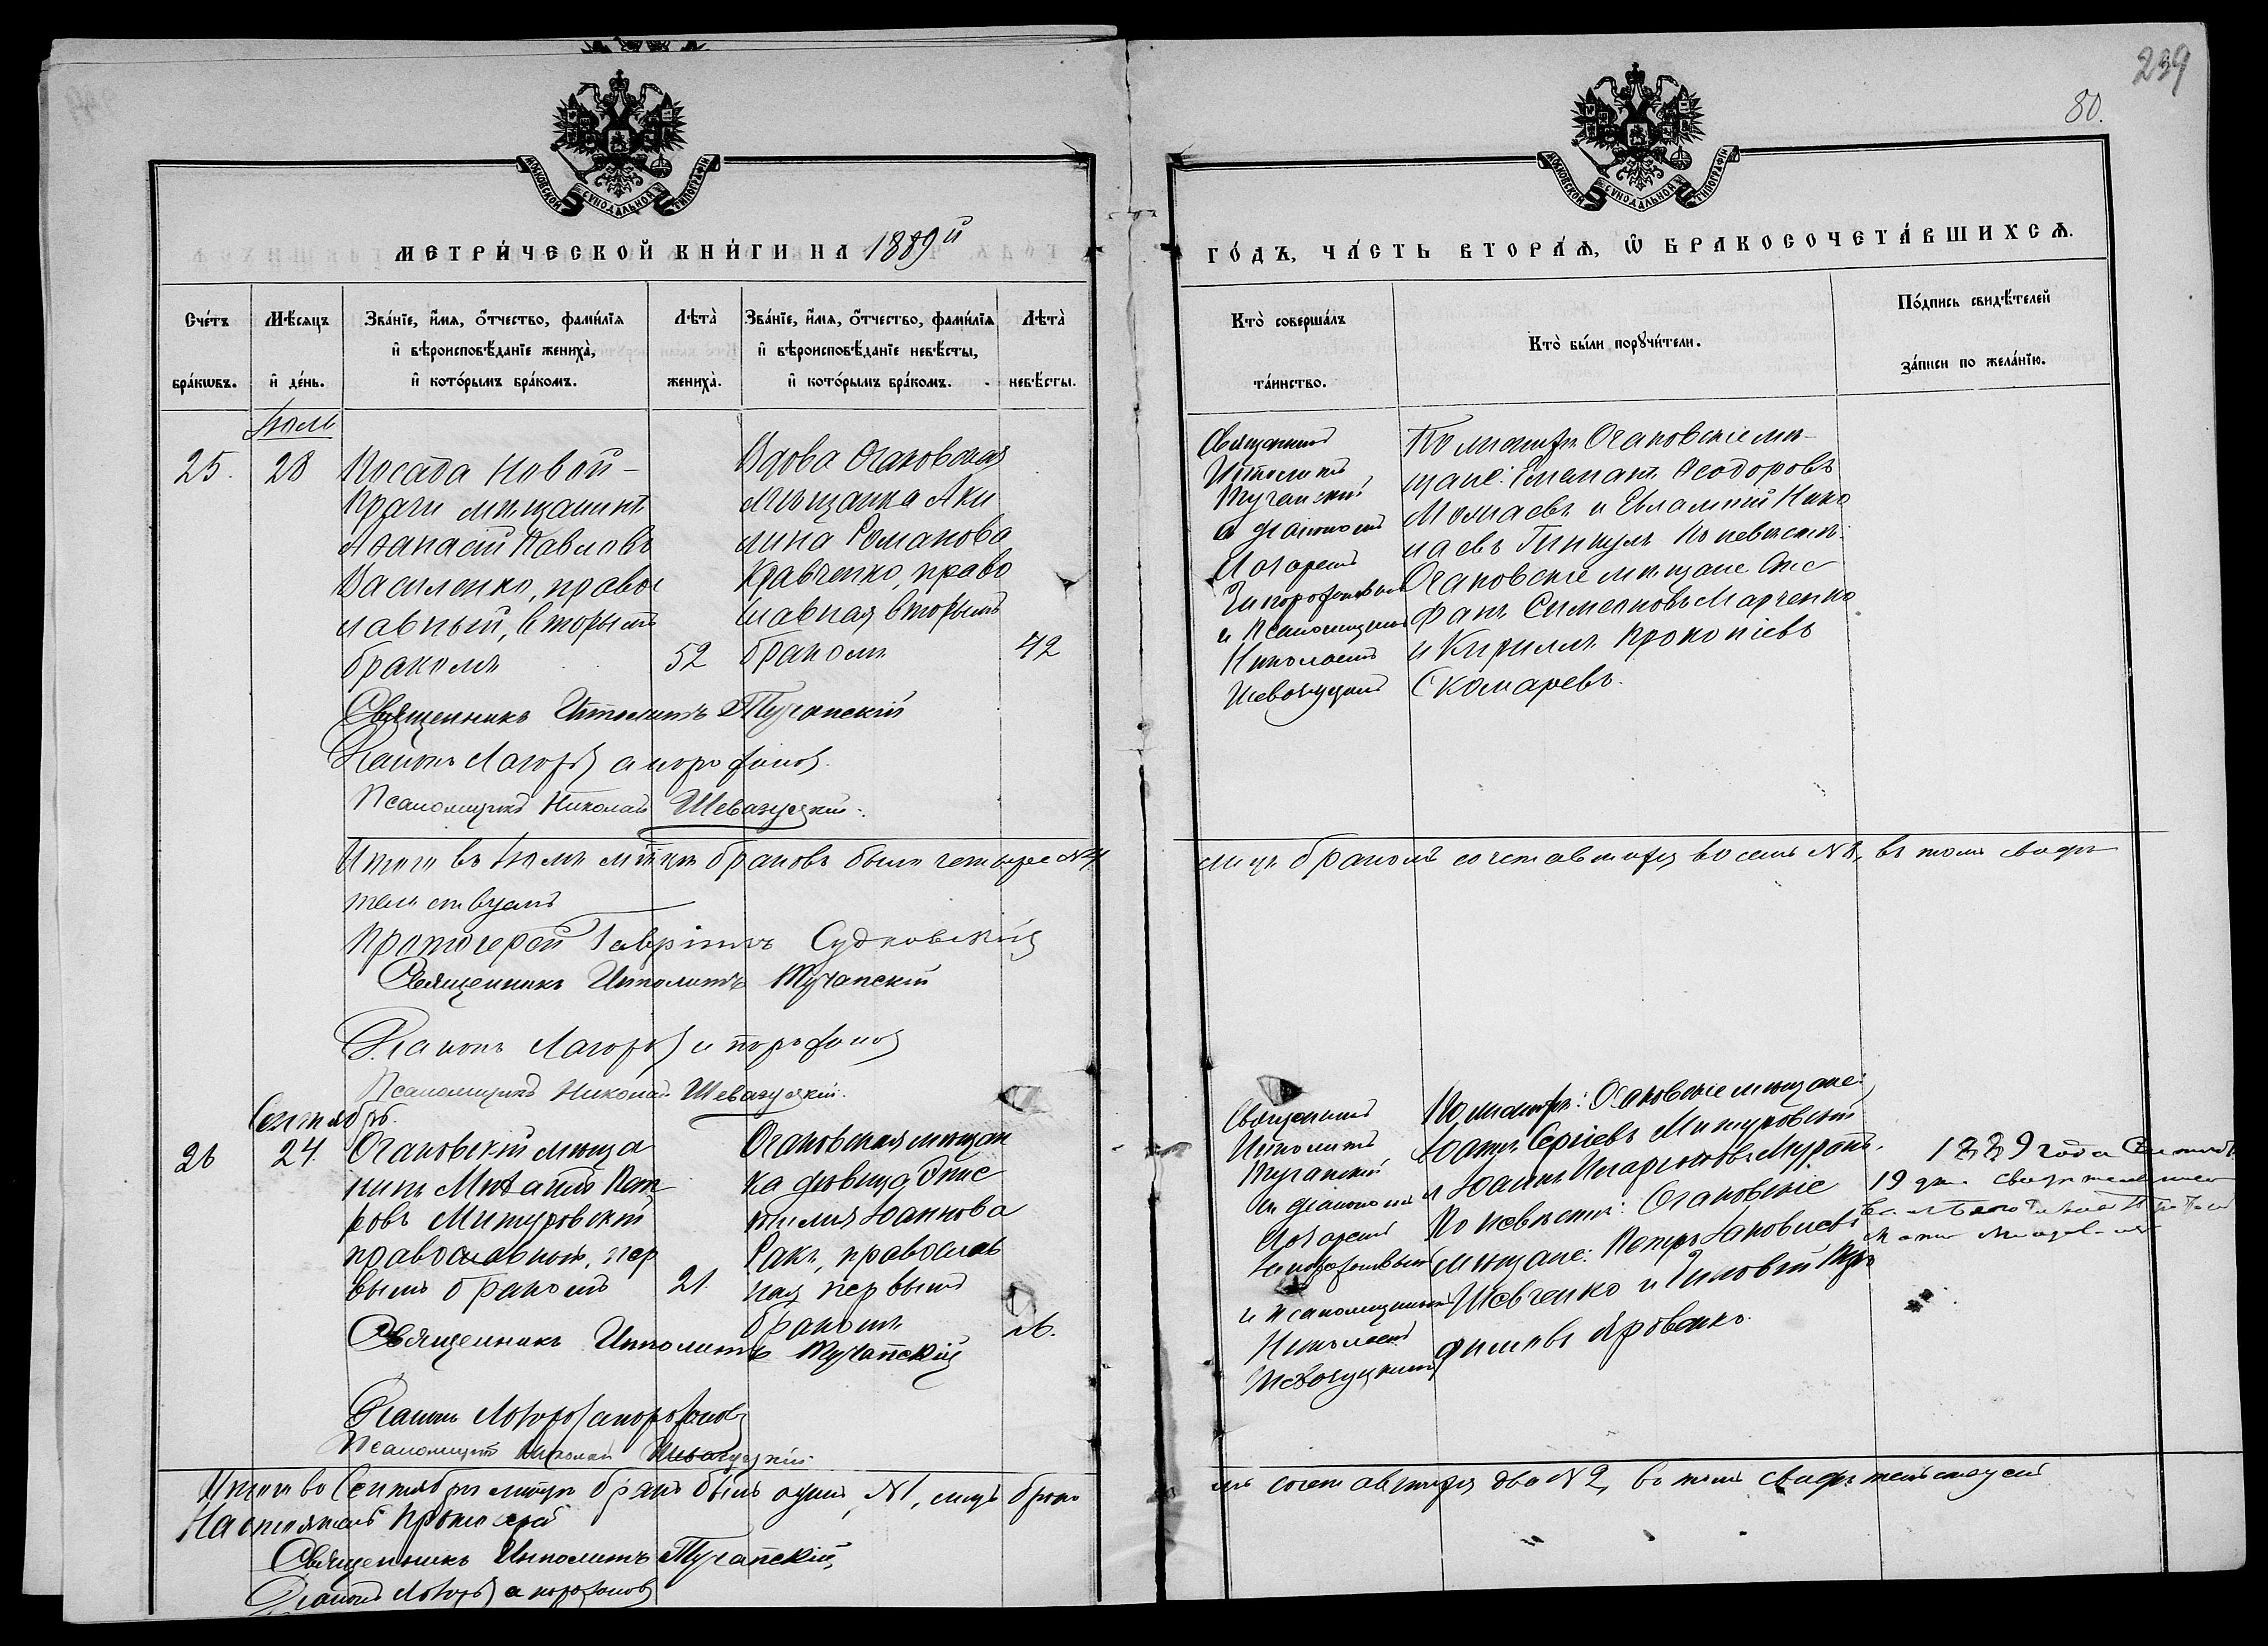 239
80.
МОСКОВСКОЙ СѴНОДАЛЬНОЙ ТИПОГРАФІИ
МОСКОВСКОЙ СѴНОДАЛЬНОЙ ТИПОГРАФІИ
МЕТРИ́ЧЕСКОЙ КНИ́ГИ НА 1889й
ГО́ДЪ, ЧА́СТЬ ВТОРА́Ѧ, Ѡ҆ БРАКОСОЧЕТА́ВШИХСѦ.
Сче́тъ бра́кѡвъ.
Мѣ́сяцъ и҆ де́нь.
Зва́нїе, и҆́мя, ѻ҆́тчество, фами́лїя
и҆ вѣроисповѣ́данїе жениха̀,
и҆ кото́рымъ бра́комъ.
Лѣта̀ жениха̀.
Зва́нїе, и҆́мя, ѻ҆́тчество, фами́лїя
и҆ вѣроисповѣ́данїе невѣ́сты,
и҆ кото́рымъ бра́комъ.
Лѣта̀ невѣ́сты.
Кто̀ соверша́лъ
та́инство.
Кто̀ бы́ли порꙋчи́тели.
По́дпись свидѣ́телей
за́писи по жела́нїю.
Іюль
25.
28
Посада Новой-
Праги мѣщанинъ
Аѳанасій Павловъ
Василенко, правос
лавный, вторымъ
бракомъ
52
Вдова Очаковская
мѣщанка Аки
лина Романова
Кравченко, право
славная вторымъ
бракомъ
42
Священникъ
Ипполитъ
Тучапскій
а діаконъ
Лазарь
и Псаломщикъ
Николай
По женихѣ Очаковскіе мѣ-
щане: Ѳеодоровъ
и Евлампій Нико
лаевъ По невѣстѣ:
Очаковскіе мѣщане Сте
фанъ Симеоновъ Марченко
и Кириллъ Прокопіевъ
Скомаревъ.
Священникъ Ипполитъ Тучапскій
Діаконъ Лазарь
Псаломщикъ Николай Шевазуцкій.
Итого въ Іюлѣ мѣсяцѣ браковъ было четыре №4
лицъ бракомъ сочетавшихся восемь №8, въ томъ свидѣ
тельствуемъ
Протоіерей Гавріилъ Судковскій
Священникъ Ипполитъ Тучапскій
Діаконъ Лазарь
Псаломщикъ Николай Шевазуцкій.
Сентябрь.
26
24
Очаковскій мѣща
нинъ Михаилъ Пет
ровъ Митуровскій
православный, пер
вымъ бракомъ
21.
Очаковская мѣщан
ка дѣвица Енис
Іоаннова
Ракъ, православ
ная первымъ
бракомъ
16.
Священникъ
Ипполитъ
Тучапскій
и діаконъ
Лазарь
и псаломщикъ
Николай
По женихѣ: Очаковскіе мѣщане:
Іоаннъ Сергіевъ Митуровскій
и Іоаннъ Иларіоновъ
По невѣстѣ: Очаковскіе
мѣщане: Петръ Яковлевъ
Шевченко и
филовъ Яровенко.
1889 года
19 дня
Священникъ Ипполитъ Тучапскій
Діаконъ Лазарь
Псаломщикъ Николай Шевазуцкій.
Итого въ Сентябрѣ мѣсяцѣ бракъ былъ одинъ, №1, лицъ брако
мъ сочетавшихся два №2, въ томъ свидѣтельствуемъ
Настоятель Протоіерей
Священникъ Ипполитъ Тучапскій
Діаконъ Лазарь